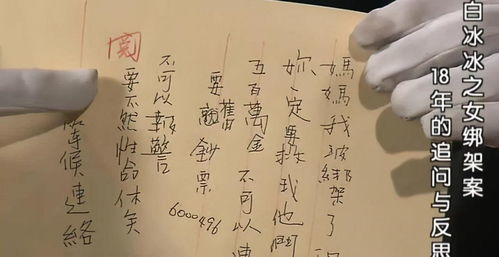 白冰冰之女绑架案
18年的追问与反思
媽媽我被綁架了
妳一定要救我他們
五百萬金 不可以連
要舊鈔票
6000496
不可以報警
要不然性命休矣
候連絡